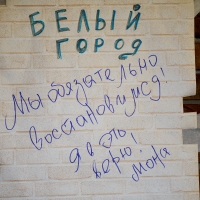 БЕЛЫЙ
ГОРОД
Мы обязательно
восстановимся!
Я в это
верю!
Мона